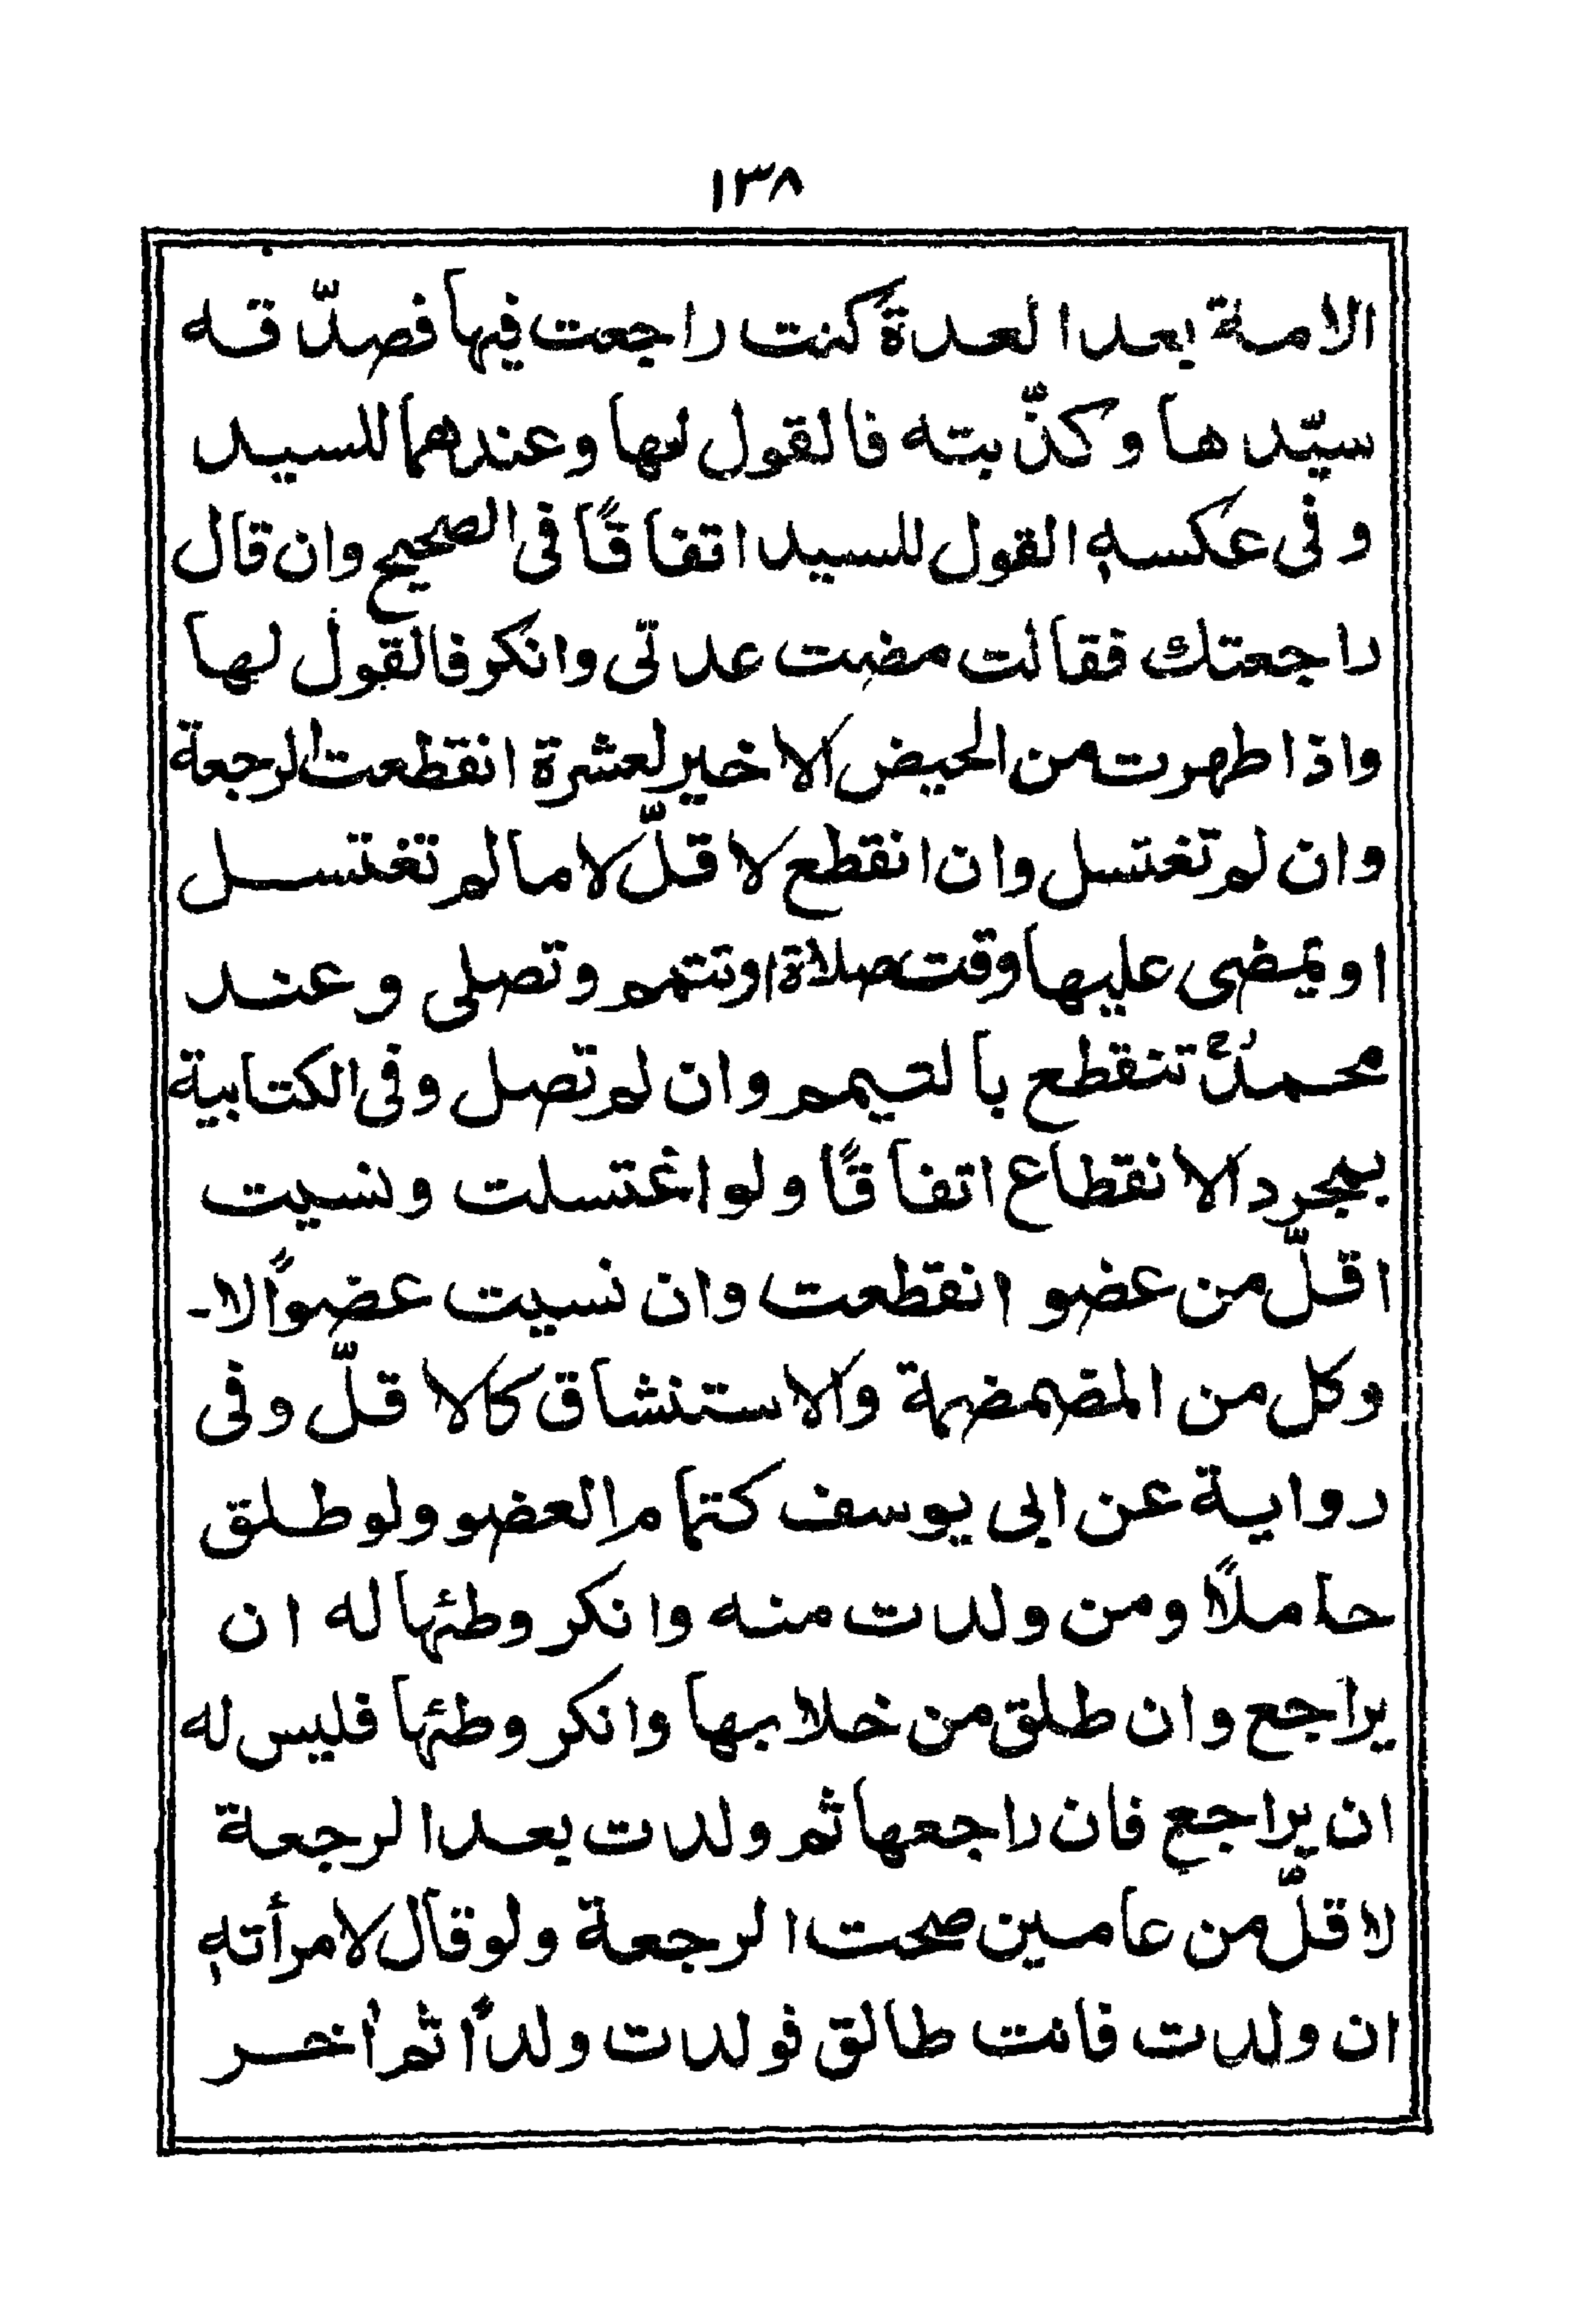 ١٣٨
الامة بعد العدة كنت راجعت فيها فصدّقه
سيّدها وكذّبته فالقول لها وعندهما للسيد
وفى عكسهٖ القول للسيد اتفاقًا فى الصحيح وان قال
راجعتك فقالت مضت عدتى وانكر فالقول لها
واذا طهرت من الحيض الاخير لعشرة انقطعت الرجعة
وان لم تغتسل وان انقطع لاقلّ لا ما لم تغتسل
او يمضى عليها وقت صلاة او تتيمم وتصلى وعند
محمدؒ تنقطع بالتيمم وان لم تصل وفى الكتابية
بمجرد الانقطاع اتفاقًا ولو اغتسلت ونسيت
اقلّ من عضو انقطعت وان نسيت عضوًا لا۔
وكل من المضمضة والاستنشاق كالاقلّ وفى
رواية عن ابى يوسف كتمام العضو ولو طلق
حاملًا ومن ولدت منه وانكر وطئها له ان
يراجع وان طلق من خلا بها وانكر وطئها فليس له
ان يراجع فان راجعها ثم ولدت بعد الرجعة
لاقلّ من عامين صحت الرجعة ولو قال لامرأتهٖ
ان ولدت فانت طالق فولدت ولدًا ثم اٰخر